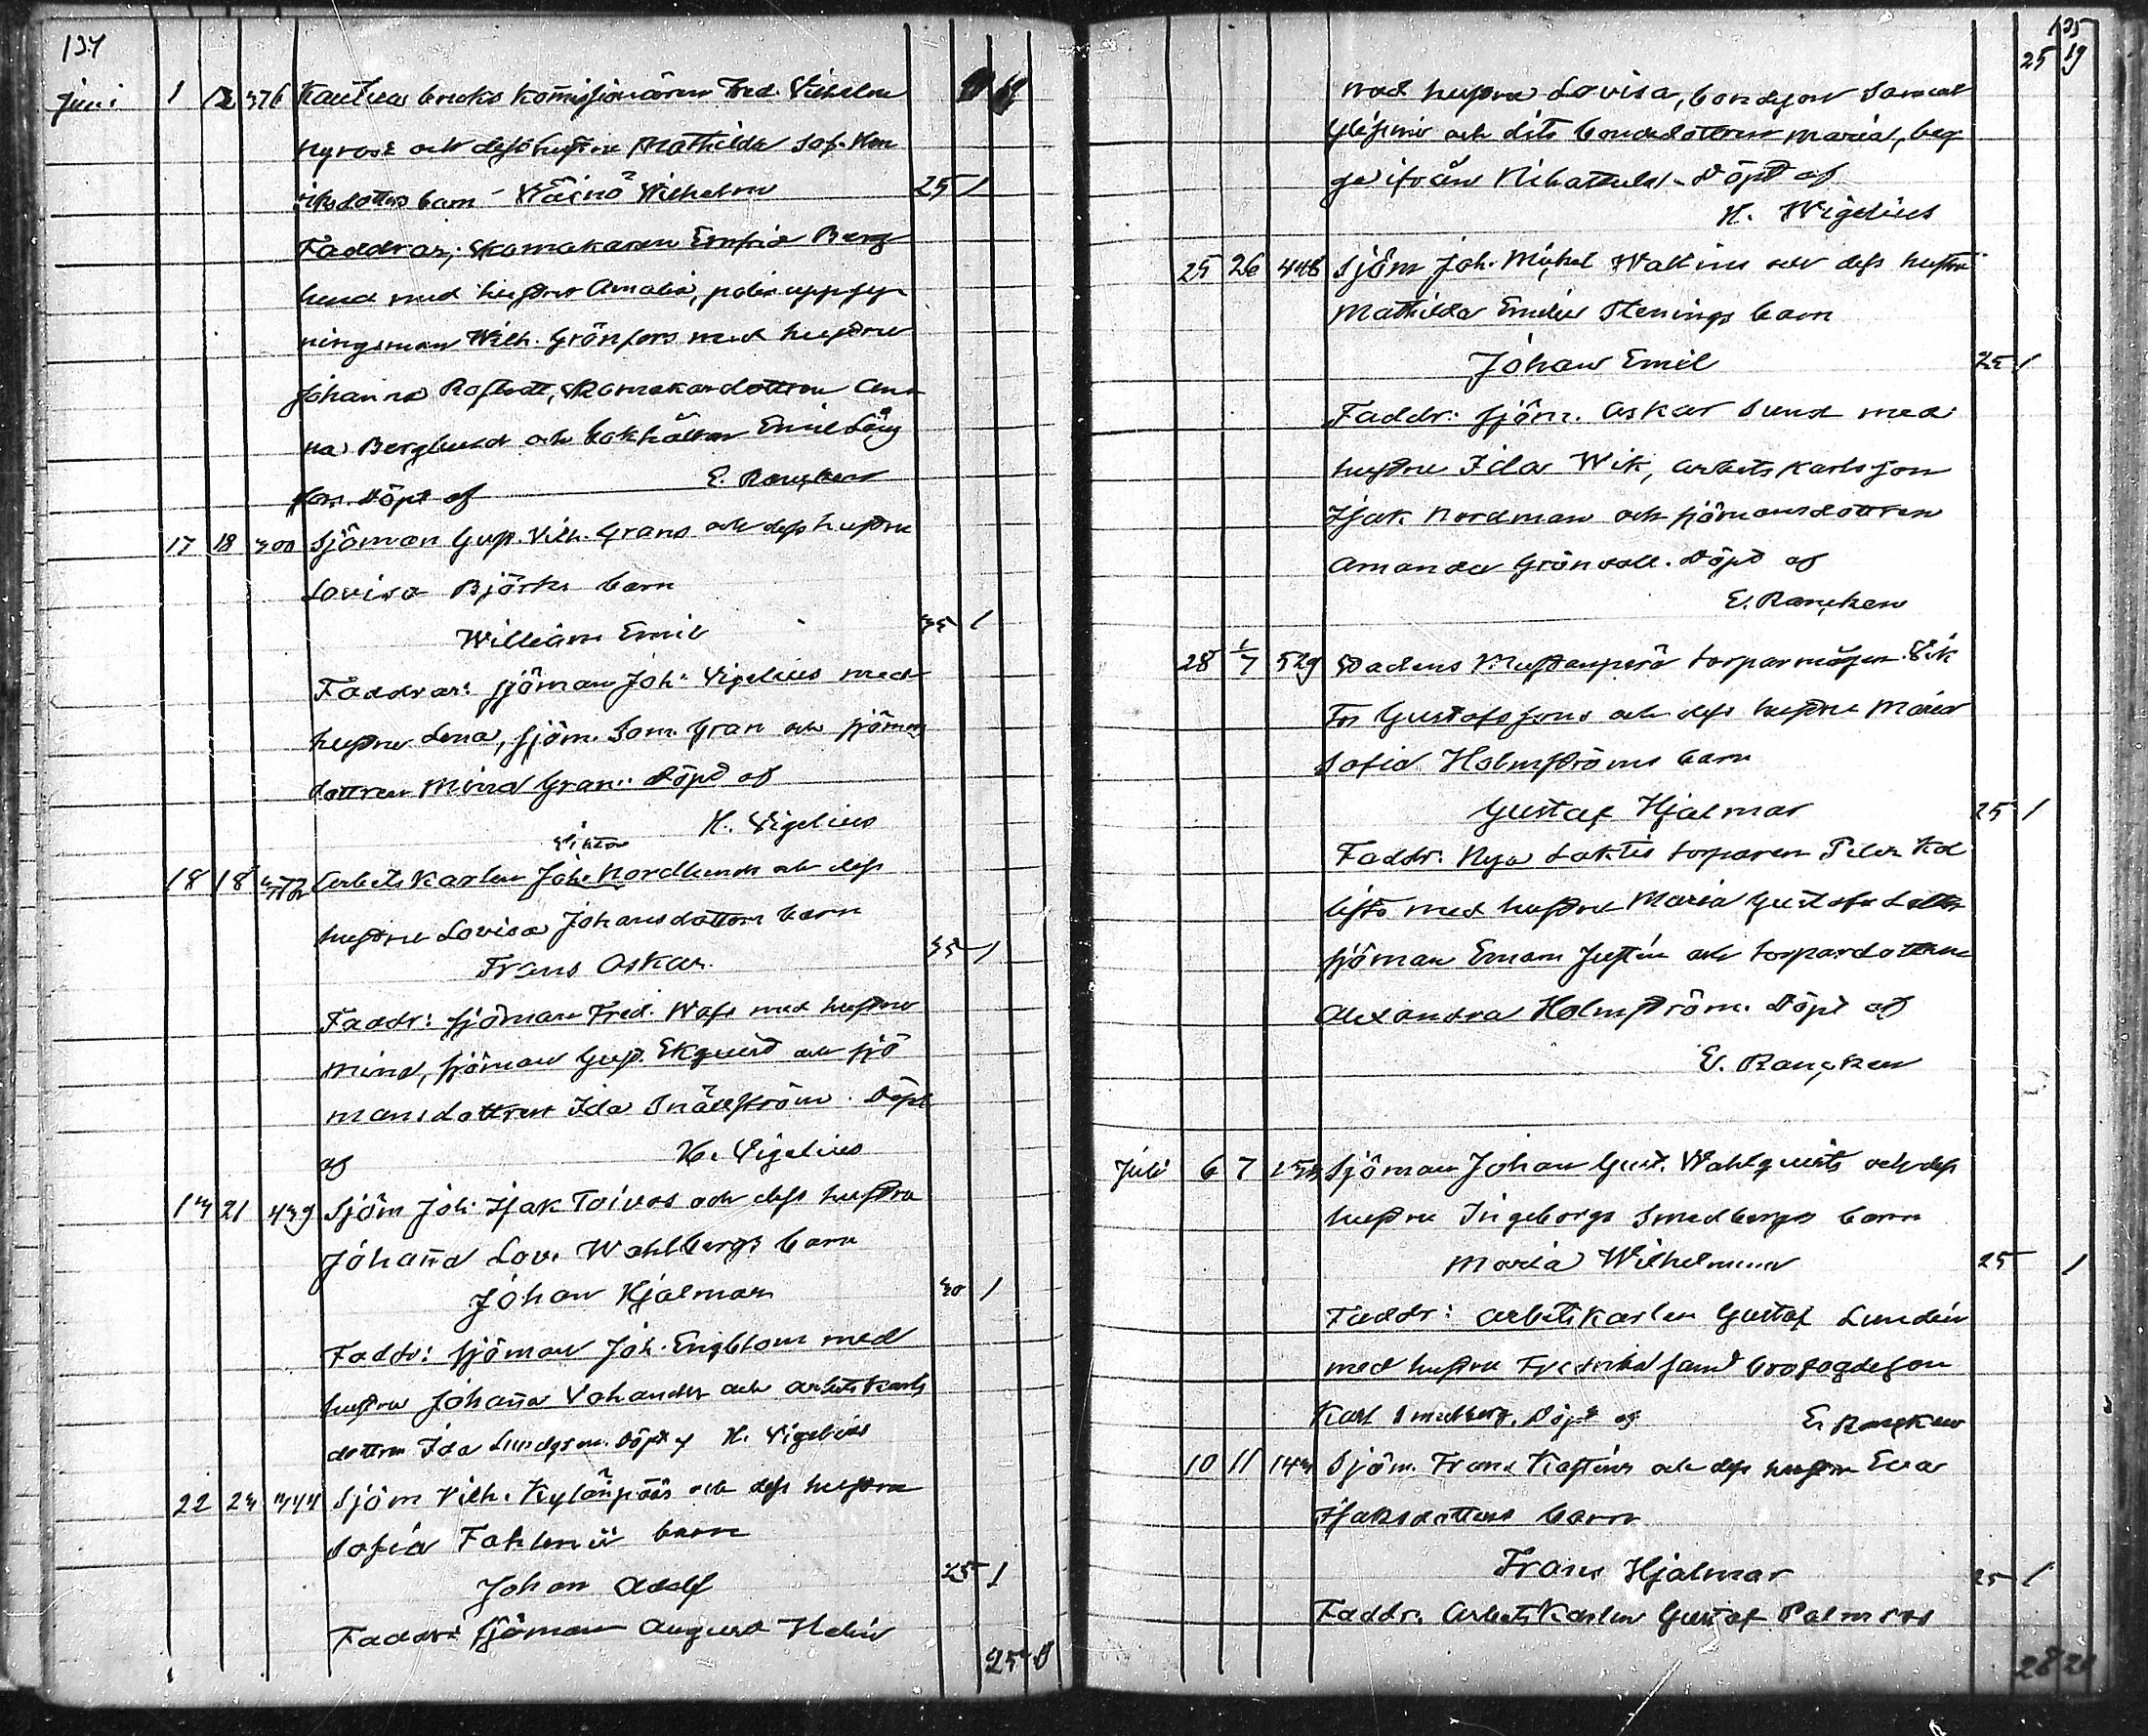 134
Juni 1 12 376 Kautua bruks Komissionären Fred. Vilhelm
Nyroos och dess hustru Mathilda Sof. Hen
riksdotters barn - Wäinö Wilhelm 25 1
Faddrar; Skomakaren Berg
lund med hustru Amalia, polisuppsy
ningsman Wilh. Grönfors med hustru
Johanna Skomakardottren An
na Berglund och bokhållar Emil Lång
fors. Döpt af E. Rancken
17 18 300 Sjöman Gust. Vilh. Grans och dess hustru
Lovisa Björks barn
William Emil 35 1
Faddrar: sjöman Joh. Vigelius med
hustru Lena, sjöm. Sam. Gran och sjömans
dottren Mina Gran. Döpt af
H. Vigelius
Viktor
18 18 Arbets Karlen Joh. Nordlunds och dess
hustru Lovisa Johansdotters barn
Frans Oskar. 35 1
Faddr: sjöman Fred. Wass med hustru
Mina, sjöman Gust. Ekquist och sjö
mansdottren Ida Snällström. Döpt
af H. Vigelius
13 21 439 Sjöm Joh. Isak Toivos och dess hustru
Johanna Lov. Wahlbergs barn
Johan Hjalmar 30 1
Faddr: sjöman Joh. Engblom med
hustru Johanna Vahander och arbetskarls
dottren Ida Lindgren. Döpt af H. Vigelius
22 23 344 Sjöm Vilh. Kylänpääs och dess hustru
Sofia barn
Johan Adolf 25 1
Faddr: sjöman August Helin
25 8
135
25 19
med hustru Lovisa, bondeson Samuel
och dito bondedottren Maria, beg
ge ifrån Nihattula. Döpt af
H. Wigelius
25 26 448 Sjöm Joh. Mikael Wallins och dess hustru
Mathilda Emilia Stenings barn
Johan Emil 25 1
Faddr: sjöm. Oskar Sund med
hustru Ida Wik, arbetskarlsson
Isak Nordman och sjömansdottren
Amanda Grönvall. Döpt af
E. Rancken
28 1/7 529 torparmågen Vik
tor Gustafssons och dess hustru Maria
Sofia Holmströms barn
Gustaf Hjalmar 25 1
Faddr: Nya torparen Peter Kal
listo med hustru Maria Gustafsdotter
sjöman Eman Justin och torpardottren
Alexandra Holmström. Döpt af
E. Rancken
Juli 6 7 Sjöman Johan Gust. Wahlquists och dess
hustru Ingeborgs Smedbergs barn
Maria Wilhelmina 25 1
Faddr: arbetskarlen Gustaf Lundén
med hustru Fredrika samt brofogdeson
Karl Smedberg. Döpt af E. Rancken
10 11 143 Sjöm. Frans och dess hustru Eva
Isaksdotters barn
Frans Hjalmar 25 1
Faddr. Arbets Karlen Gustaf Palmros
28 20